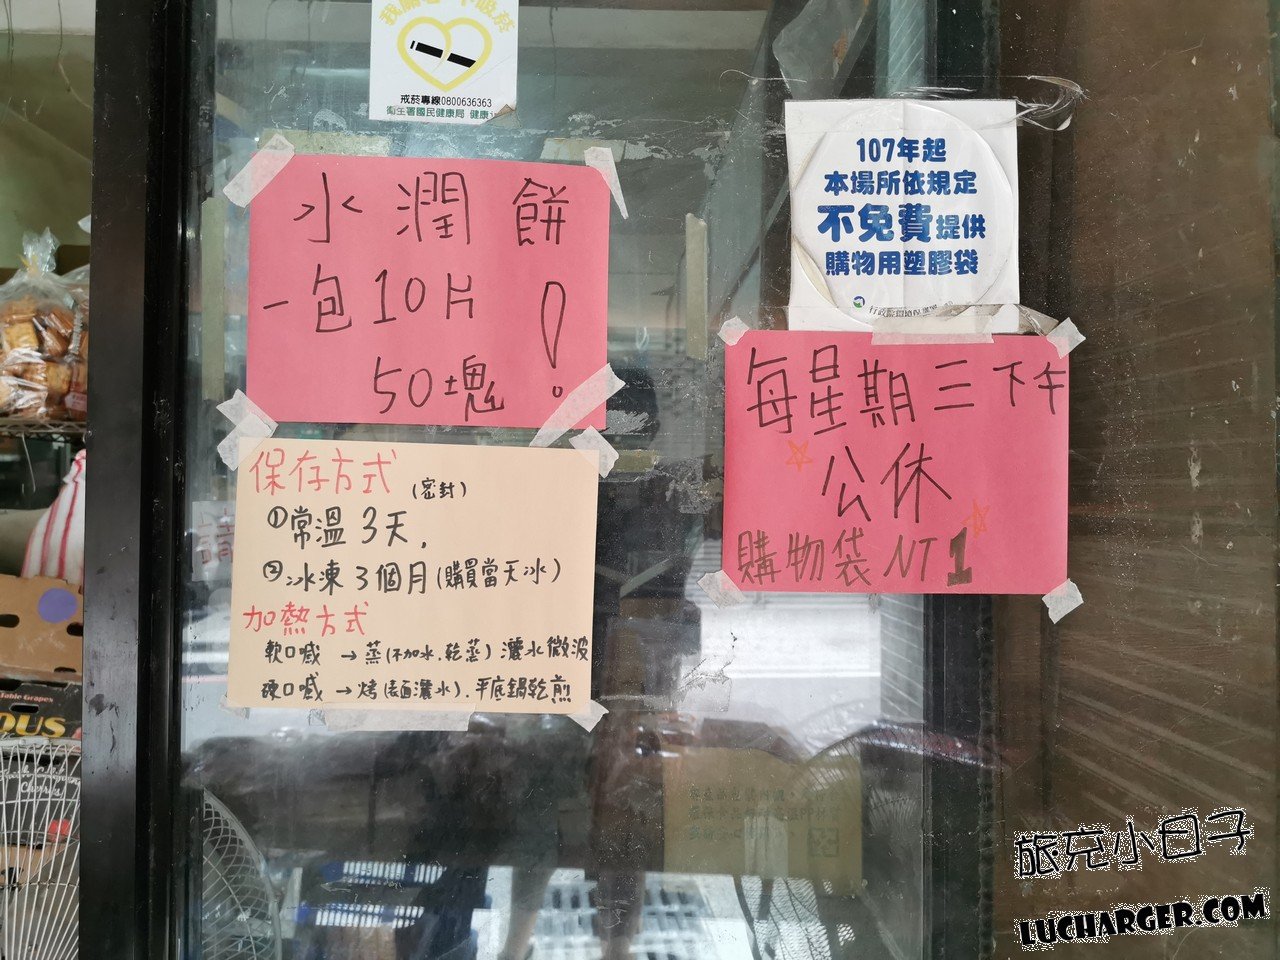 戒菸專線0800636363
衛生署國民健康局 健康
水潤餅
一包10片
50塊!
保存方式(密封)
①常溫3天,
②冰凍3個月(購買當天冰)
加熱方式
軟口感→蒸(不加水.乾蒸)灑水微波
硬口感→烤(表面灑水).平底鍋乾煎
107年起
本場所依規定
不免費提供
購物用塑膠袋
每星期三下午
公休
購物袋NT1
Table Grapes
OUS
旅充小日子
LUCHARGER.COM